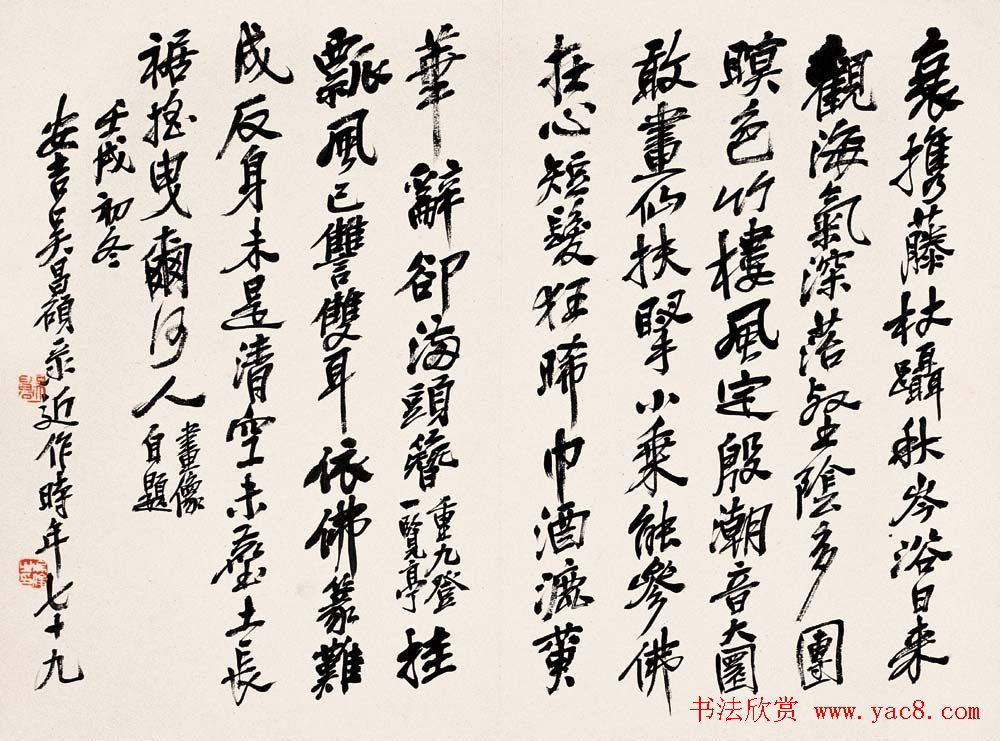 衰携藤杖蹑秋岑浴日来
觀海氣深落壑陰多團
暝色竹樓風定殷潮音大圓
敢畫仙扶掔小乘能參佛
在心短髮狂晞巾酒漉黄
華辭卻海頭簪重九登一覽亭挂
瓢風已讐雙耳依佛篆難
成反身未是清空未壑土長
裾搖曳爾何人畫像自題
壬戌初冬
安吉吳昌碩录近作時年七十九
书法欣赏 www.yac8.com